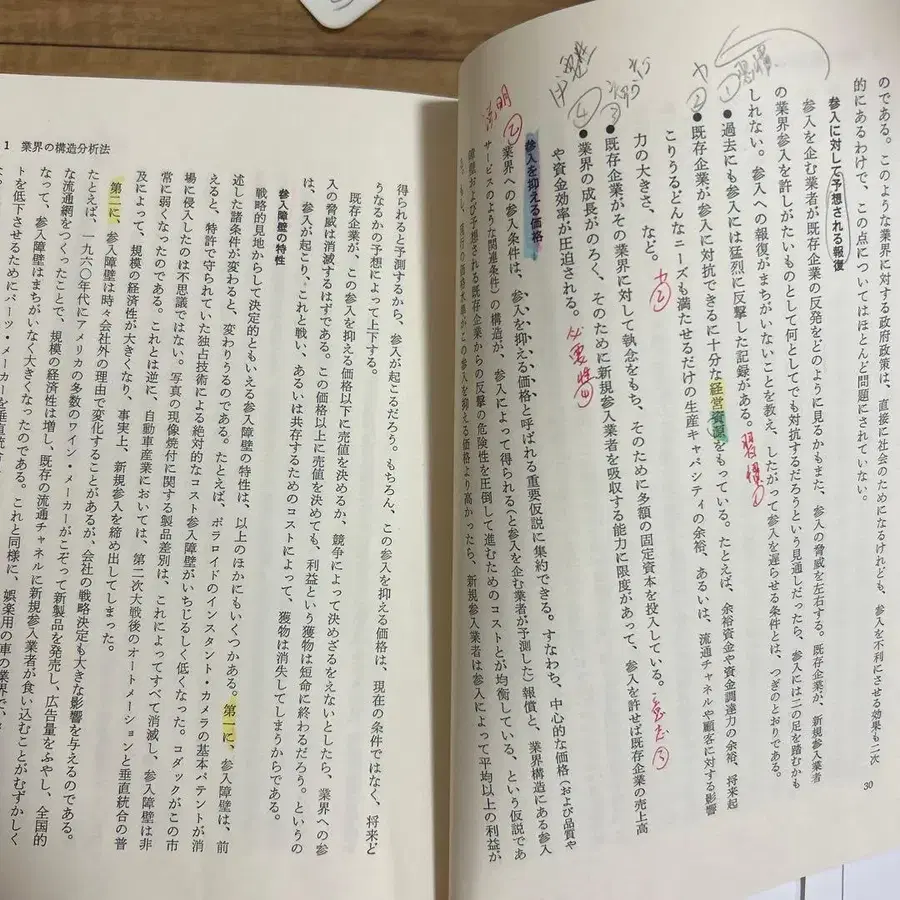 のである。このような業界に対する政府政策は、直接に社会のためになるけれども、参入を不利にさせる効果も二次
的にあるわけで、この点についてはほとんど問題にされていない。
参入に対して予想される報復
参入を企む業者が既存企業の反発をどのように見るかもまた、参入の脅威を左右する。既存企業が、新規参入業者
の業界参入を許しがたいものとして何としてでも対抗するだろうという見通しだったら、参入には二の足を踏むかも
しれない。参入への報復がまちがいないことを教え、したがって参入を遅らせる条件とは、つぎのとおりである。
①習慣
●過去にも参入には猛烈に反撃した記録がある。
習慣①
カ②
●既存企業が参入に対抗できるに十分な経営資源をもっている。たとえば、余裕資金や資金調達力の余裕、将来起
こりうるどんなニーズも満たせるだけの生産キャパシティの余裕、あるいは、流通チャネルや顧客に対する影響
力の大きさ、など。
カ②
③
●既存企業がその業界に対して執念をもち、そのために多額の固定資本を投入している。
意志③
④
●業界の成長がのろく、そのために新規参入業者を吸収する能力に限度があって、参入を許せば既存企業の売上高
や資金効率が圧迫される。
必要性④
参入を抑える価格
業界への参入条件は、参入を抑える価格と呼ばれる重要仮説に集約できる。すなわち、中心的な価格(および品質や
サービスのような関連条件)の構造が、参入によって得られる(と参入を企む業者が予測した)報償と、業界構造にある参入
障壁および予想される既存企業からの反撃の危険性を圧倒して進むためのコストとが均衡している、という仮説であ
る。もし、現行の価格水準がこの参入を抑える価格より高かったら、新規参入業者は参入によって平均以上の利益が
30
1 業界の構造分析法
得られると予測するから、参入が起こるだろう。もちろん、この参入を抑える価格は、現在の条件ではなく、将来ど
うなるかの予想によって上下する。
既存企業が、この参入を抑える価格以下に売値を決めるか、競争によって決めざるをえないとしたら、業界への参
入の脅威は消滅するはずである。この価格以上に売値を決めても、利益という獲物は短命に終わるだろう。というの
は、参入が起こり、これと戦い、あるいは共存するためのコストによって、獲物は消失してしまうからである。
参入障壁の特性
戦略的見地からして決定的ともいえる参入障壁の特性は、以上のほかにもいくつかある。第一に、参入障壁は、前
述した諸条件が変わると、変わりうるのである。たとえば、ポラロイドのインスタント・カメラの基本パテントが消
えると、特許で守られていた独占技術による絶対的なコスト参入障壁がいちじるしく低くなった。コダックがこの市
場に侵入したのは不思議ではない。写真の現像焼付に関する製品差別は、これによってすべて消滅し、参入障壁は非
常に弱くなったのである。これとは逆に、自動車産業においては、第二次大戦後のオートメーションと垂直統合の普
及によって、規模の経済性が大きくなり、事実上、新規参入を締め出してしまった。
第二に、参入障壁は時々会社外の理由で変化することがあるが、会社の戦略決定も大きな影響を与えるのである。
たとえば、一九六〇年代にアメリカの多数のワイン・メーカーがこぞって新製品を発売し、広告量をふやし、全国的
な流通網をつくったことで、規模の経済性は増し、既存の流通チャネルに新規参入業者が食い込むことがむずかしく
なって、参入障壁はまちがいなく大きくなったのである。これと同様に、娯楽用の車の業界で、
トを低下させるためにパーツ・メーカーを垂直統合